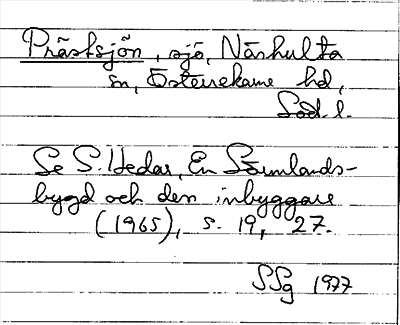 Prästsjön, sjö, Nårhulta
sn, Österrekarne hd,
Söd. l.
Se S. Hedar, En Sörmlands-
bygd och den inbyggare
(1965), s. 19, 27.
SSg 1977